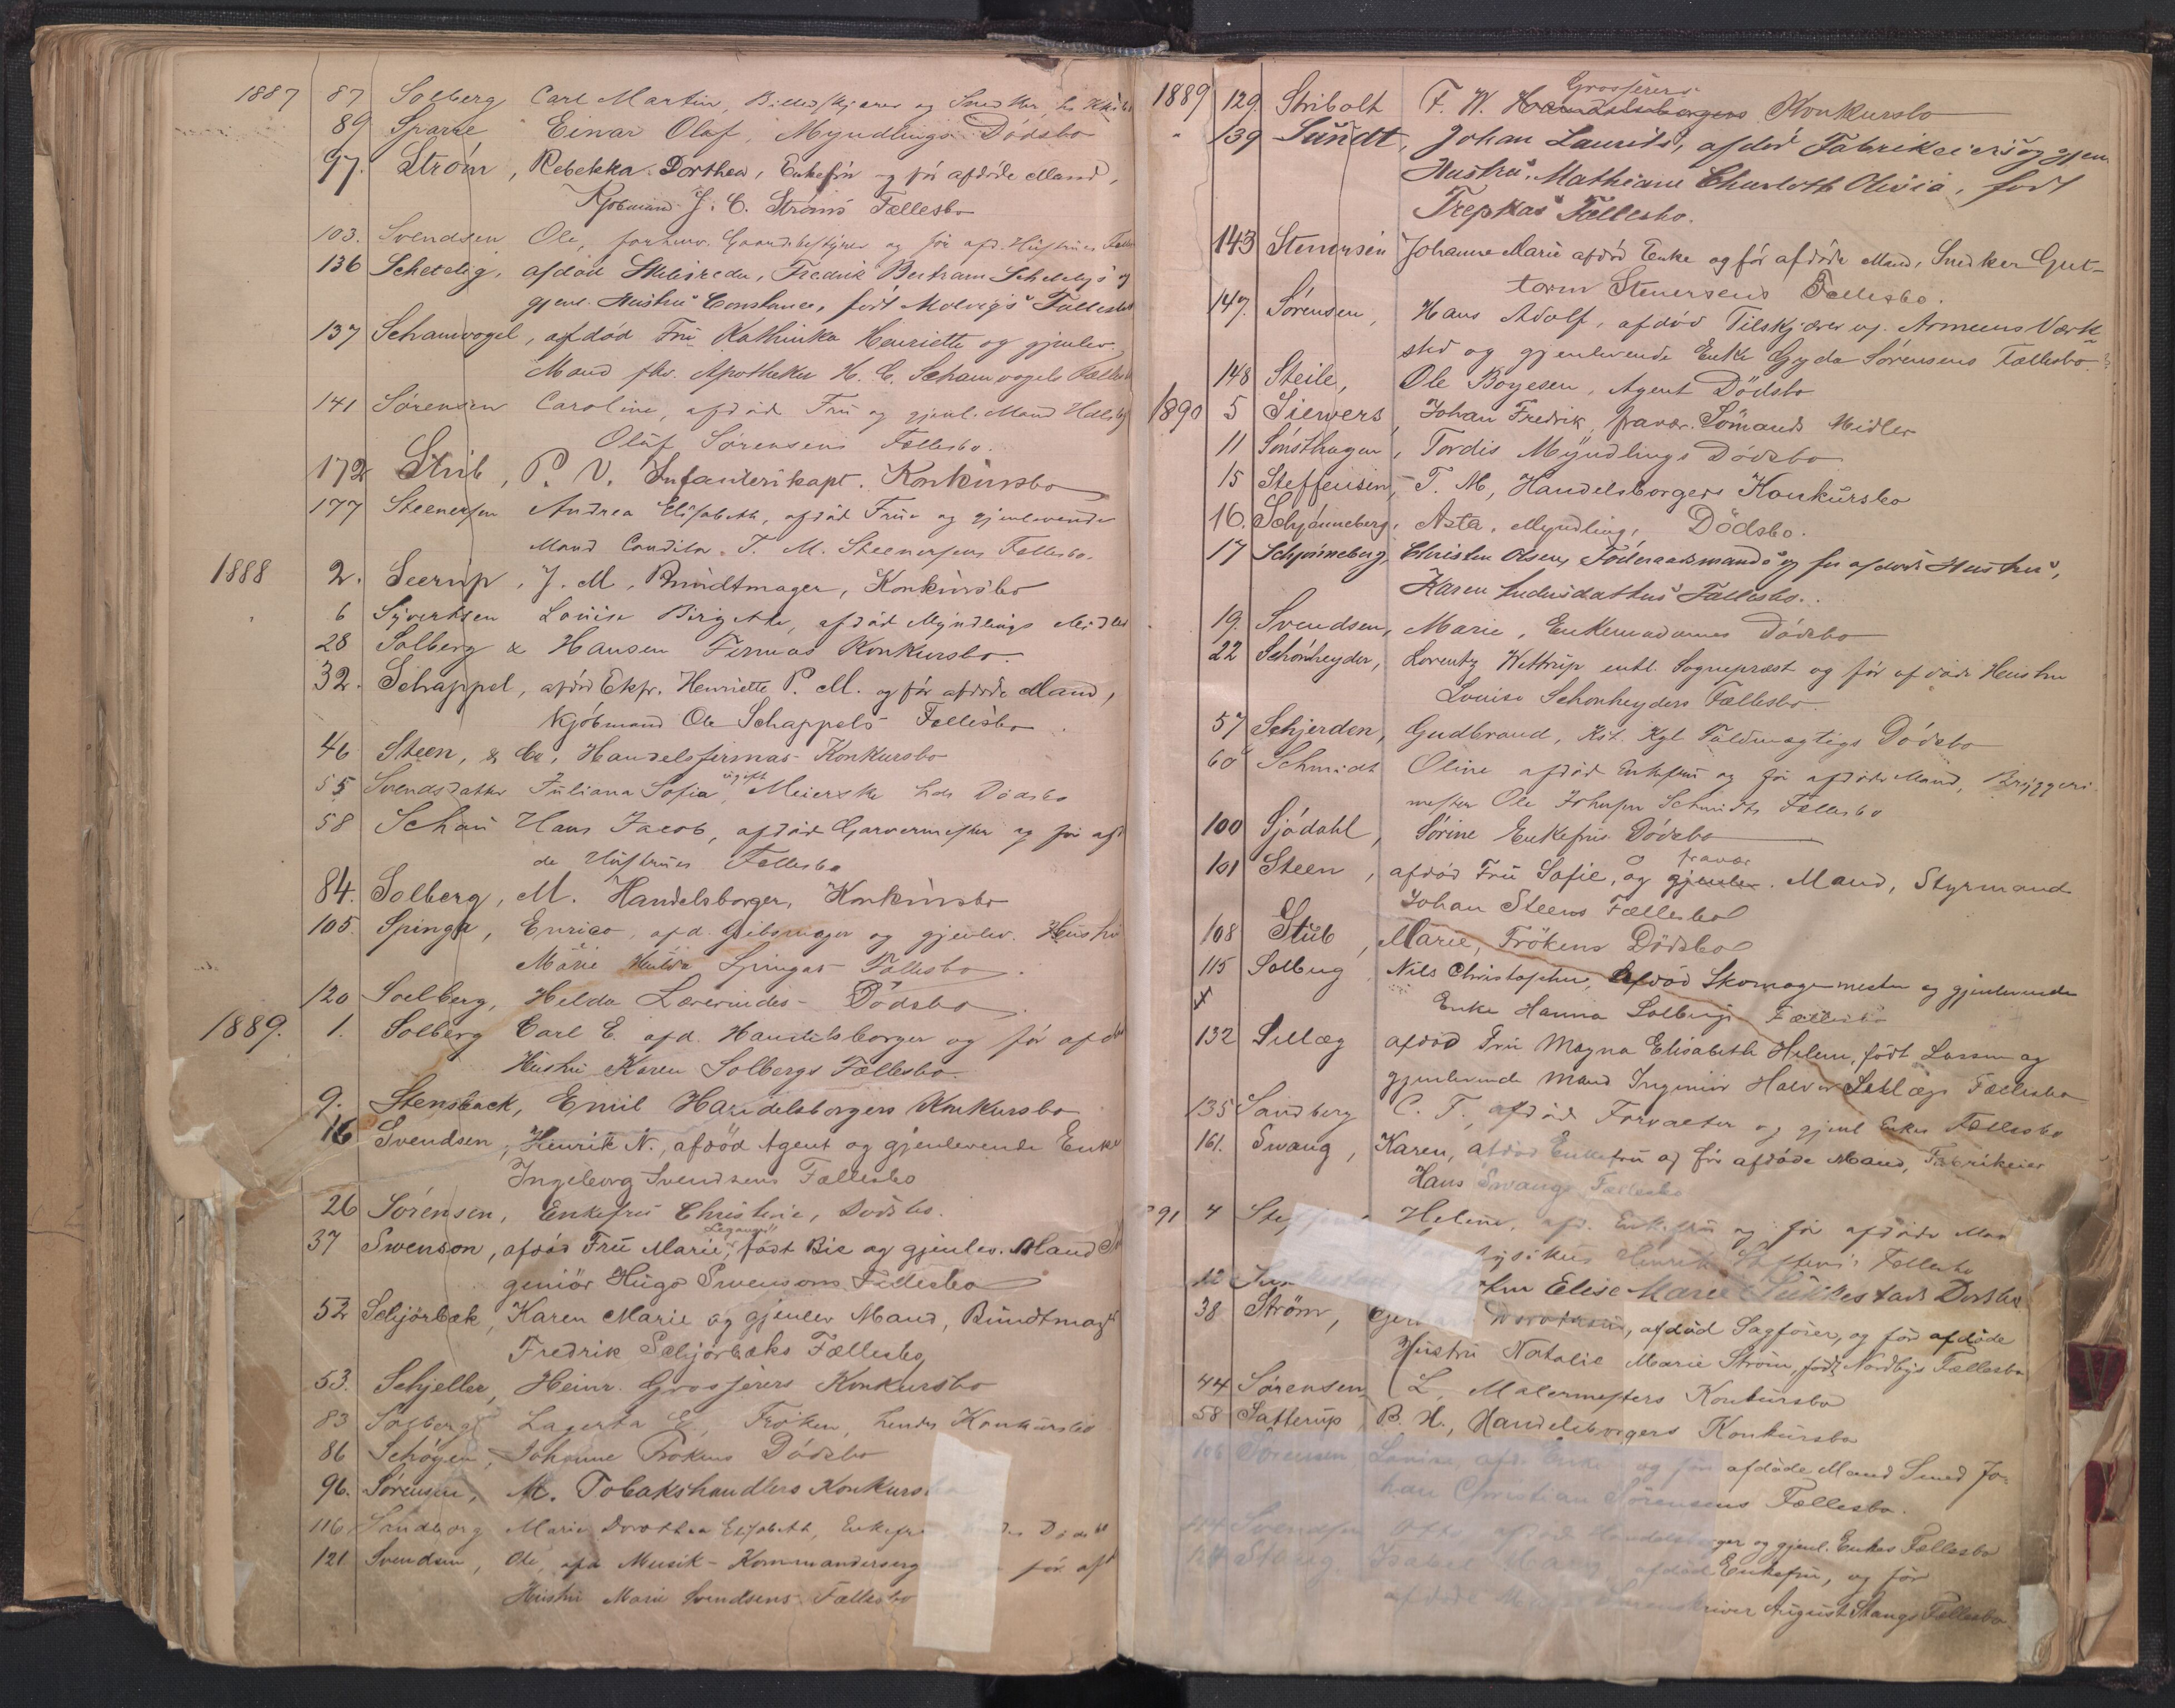 1887 87 Solberg Carl Martin, Billedskjærer og Snedker, hs
89 Sparre Einar Olaf, Myndlings Dödsbo
97. Ström, Rebekka Dorthea, Enkefru og før afdøde Mand,
Kjøbmand J. C. Ströms Fællesbo
103. Svendsen Ole, forhenv. Gaardsbestyrer og før afd. Hustrues
136 Schetelig, afdöd Skibsreder, Fredrik Bertram Scheteligs og
gjenl. Hustru Constance, født Molvigs Fællesbo
137 Schamvogel, afdöd Fru Kathinka Henriette og gjenlev.
Mand fhv. Apotheker H. C. Schamvogels
141 Sörensen Caroline, afdöd Fru og gjenl. Mand
Oluf Sörensens Fællesbo.
172 Strib, P. V. Infanterikapt. Konkursbo
177 Steenersen Andrea Elisabeth, afdöd Frue og gjenlevende
Mand T. M. Steenersens Fællesbo.
1888 2. Seerup, J. M, Bundtmager, Konkursbo
6 Syvertsen Louise Birgitte, afdöd Myndlings Midler
28 Solberg & Hansen Firmas Konkursbo.
32. Schappel, afdöd Ekfr. Henriette P. M. og før afdøde Mand,
Kjöbmand Ole Schappels Fællesbo.
46 Steen, & Co, Handelsfirmas Konkursbo
55 Svendsdatter Juliana Sofia, ugift Meierske hds Dödsbo
58 Schau Hans Jacob, afdöd Garvermester og før afd
de Hustrues Fællesbo
84. Solberg, M. Handelsborger, Konkursbo
105. Spinga, Enrico, afd. Gibsmager og gjenlev. Hustru
Marie Hulda Spingas Fællesbo.
120 Soelberg, Helda Lærerindes Dödsbo.
1889. 1. Solberg Carl E. afd. Handelsborger og før afd
Hustru Karen Solbergs Fællesbo.
9. Stensback, Emil Handelsborgers Konkursbo
16 Svendsen, Henrik N., afdöd Agent og gjenlevende Enke
Ingeborg Svendsens Fællesbo
26 Sörensen, Enkefru Christine, Dödsbo.
37 Swenson, afdöd Fru Marie, født Bie og gjenlev. Mand
geniör Hugo Swensons Fællesbo
52 Schjörbæk, Karen Marie og gjenlev Mand, Bundtmag
Fredrik Schjörbæks Fællesbo
53. Schjeller, Heinr. Grosserers Konkursbo
83 Solberg Lagerta E., Fröken, hendes Konkursbo
86 Schöyen, Johanne Frökens Dödsbo
96. Sörensen, M. Tobakshandlers Konkurs
116. Sandborg Marie Dorothea Elisabeth, Enkefru Dödsbo
121 Svendsen, Ole, afd Musik-Kommanderserg før afd
Hustru Marie Svendsens Fællesbo
1889 129. Stribolt F. W. Grosserers Handelsborgers Konkursbo
" 139 Sundt, Johan Laurits, afdöd Fabrikeiers og gjen
Hustru, Mathiane Charlotte Olivia, født
Trepkas Fællesbo.
143 Stenersen Johanne Marie afdöd Enke og før afdöde Mand, Snedker Gut-
torm Stenersens Fællesbo.
147. Sörensen, Hans Adolf, afdöd Filskjærer vp. Armeens Værk
sted og gjenlevende Enke Gyda Sörensens Fællesbo.
148 Steile, Ole Boyesen, Agent Dödsbo
1890 5 Siewers, Johan Fredrik, fravær. Sömands Midler
11 Sönsthagen, Tordis Myndlings Dödsbo
15 Steffensen, T. M, Handelsborgers Konkursbo
16. Schjönneberg, Asta, Myndling, Dödsbo.
17 Schjönneberg, Christen Olsen, Föderaadsmands og før afdöde Hustru,
Karen Fællesbo.
19. Svendsen, Marie, Enkemadames Dödsbo
22 Schönheyder, Lorentz Wittrup entl. Sognepræst og før afdöde Hustru
Louise Schönheyders Fællesbo.
57 Schjerden, Gudbrand, Kst. Kgl Fuldmægtigs Dödsbo
60 Schmidt Oline afdöd Enkefru og før afdöde Mand, Bryggeri
mester Ole Johnsen Schmidts Fællesbo
100 Sjödahl, Sörine Enkefrus Dödsbo
101 Steen, afdöd Fru Sofie, og gjenlev. fravær Mand, Styrmand
Johan Steens Fællesbo
108 Stub, Marie, Frökens Dödsbo
115 Solberg Nils Christopher, Afdöd Skomagermester og gjenlevende
Enke Hanna Solbergs Fællesbo
132 Sellæg afdöd Fru Magna Elisabeth Helene, født Larsen og
gjenlevende Mand Ingeniör Halvor Sellægs Fællesbo
135 Sandberg C. F., afdöd Forvalter og gjenl Enkes Fællesbo
161. Swang, Karen, afdöd Enkefru og før afdöde Mand, Fabrikeier
Hans Swangs Fællesbo
91 4 Helene, afd. Enkefru og før afdöde Man
Fællesbo
12 Elise Marie Sukkestads Dödsbo
38 Ström, afdöd Sagförer, og før afdöde
Hustru Natalie Marie Ström, født Nordbys Fællesbo
44 Sörensen L, Malermesters Konkursbo
58 Satterup, B. H., Handelsborgers Konkursbo
106 Sörensen Louise, afd. Enke og før afdöde Mand Smed Jo-
han Christian Sörensens Fællesbo.
Svendsen Otto afdöd Handelsborger og gjenl. Enkes Fællesbo
Stang, afdöd Enkefru, og før
afdöde Mand Sorenskriver August Stangs Fællesbo.